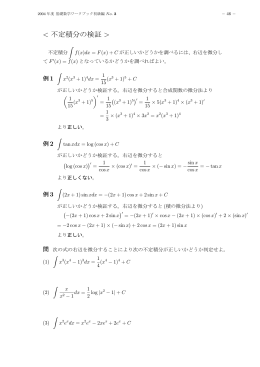 2024 年度 基礎数学ワークブック初級編 No. 3 − 38 −
< 不定積分の検証 >
不定積分 ∫ f(x)dx = F(x) + C が正しいかどうかを調べるには、右辺を微分し
て F′(x) = f(x) となっているかどうかを調べればよい。
例 1 ∫ x²(x³ + 1)⁴dx = 1/15 (x³ + 1)⁵ + C
が正しいかどうか検証する。右辺を微分すると合成関数の微分法より
(1/15 (x³ + 1)⁵)′ = 1/15 ((x³ + 1)⁵)′ = 1/15 × 5(x³ + 1)⁴ × (x³ + 1)′
= 1/3 × (x³ + 1)⁴ × 3x² = x²(x³ + 1)⁴
より正しい。
例 2 ∫ tan xdx = log (cos x) + C
が正しいかどうか検証する。右辺を微分すると
{log (cos x)}′ = 1/cos x × (cos x)′ = 1/cos x × (− sin x) = − sin x/cos x = − tan x
より正しくない。
例 3 ∫ (2x + 1) sin xdx = −(2x + 1) cos x + 2 sin x + C
が正しいかどうか検証する。右辺を微分すると (積の微分法より)
{−(2x + 1) cos x + 2 sin x}′ = −(2x + 1)′ × cos x − (2x + 1) × (cos x)′ + 2 cos x
= −2 cos x − (2x + 1) × (− sin x) + 2 cos x = (2x + 1) sin x
より正しい。
問 次の式の右辺を微分することにより次の不定積分が正しいかどうか判定せよ。
(1) ∫ x³(x⁴ − 1)³dx = 1/4 (x⁴ − 1)⁴ + C
(2) ∫ x/(x² − 1) dx = 1/2 log |x² − 1| + C
(3) ∫ x²eˣdx = x²eˣ − 2xeˣ + 2eˣ + C